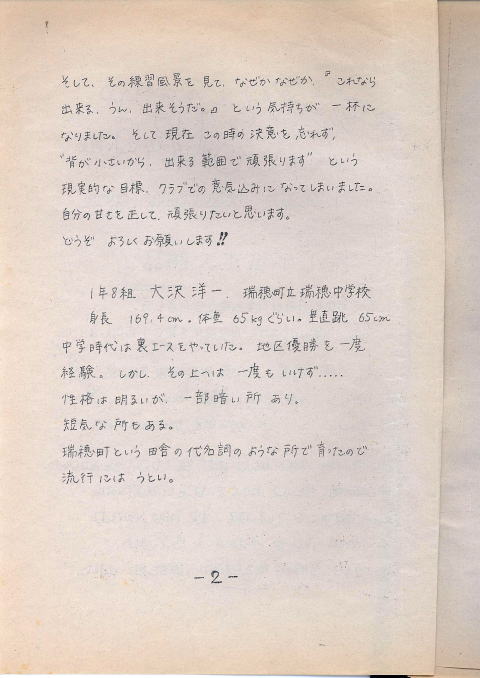 そして、その練習風景を見て、なぜかなぜか、『これなら
出来る、うん、出来そうだ。』という気持ちが一杯に
なりました。そして現在この時の決意を忘れず、
"背が小さいから、出来る範囲で頑張ります"という
現実的な目標、クラブでの意気込みになってしまいました。
自分の甘さを正して、頑張りたいと思います。
どうぞ よろしくお願いします!!
1年8組 大沢洋一、瑞穂町立瑞穂中学校
身長 169.4cm。体重 65kgぐらい。垂直跳 65cm
中学時代は裏エースをやっていた。地区優勝を一度
経験。しかし、その上へは一度もいけず.....
性格は明るいが、一部暗い所あり。
短気な所もある。
瑞穂町という田舎の代名詞のような所で育ったので
流行にはうとい。
-2-